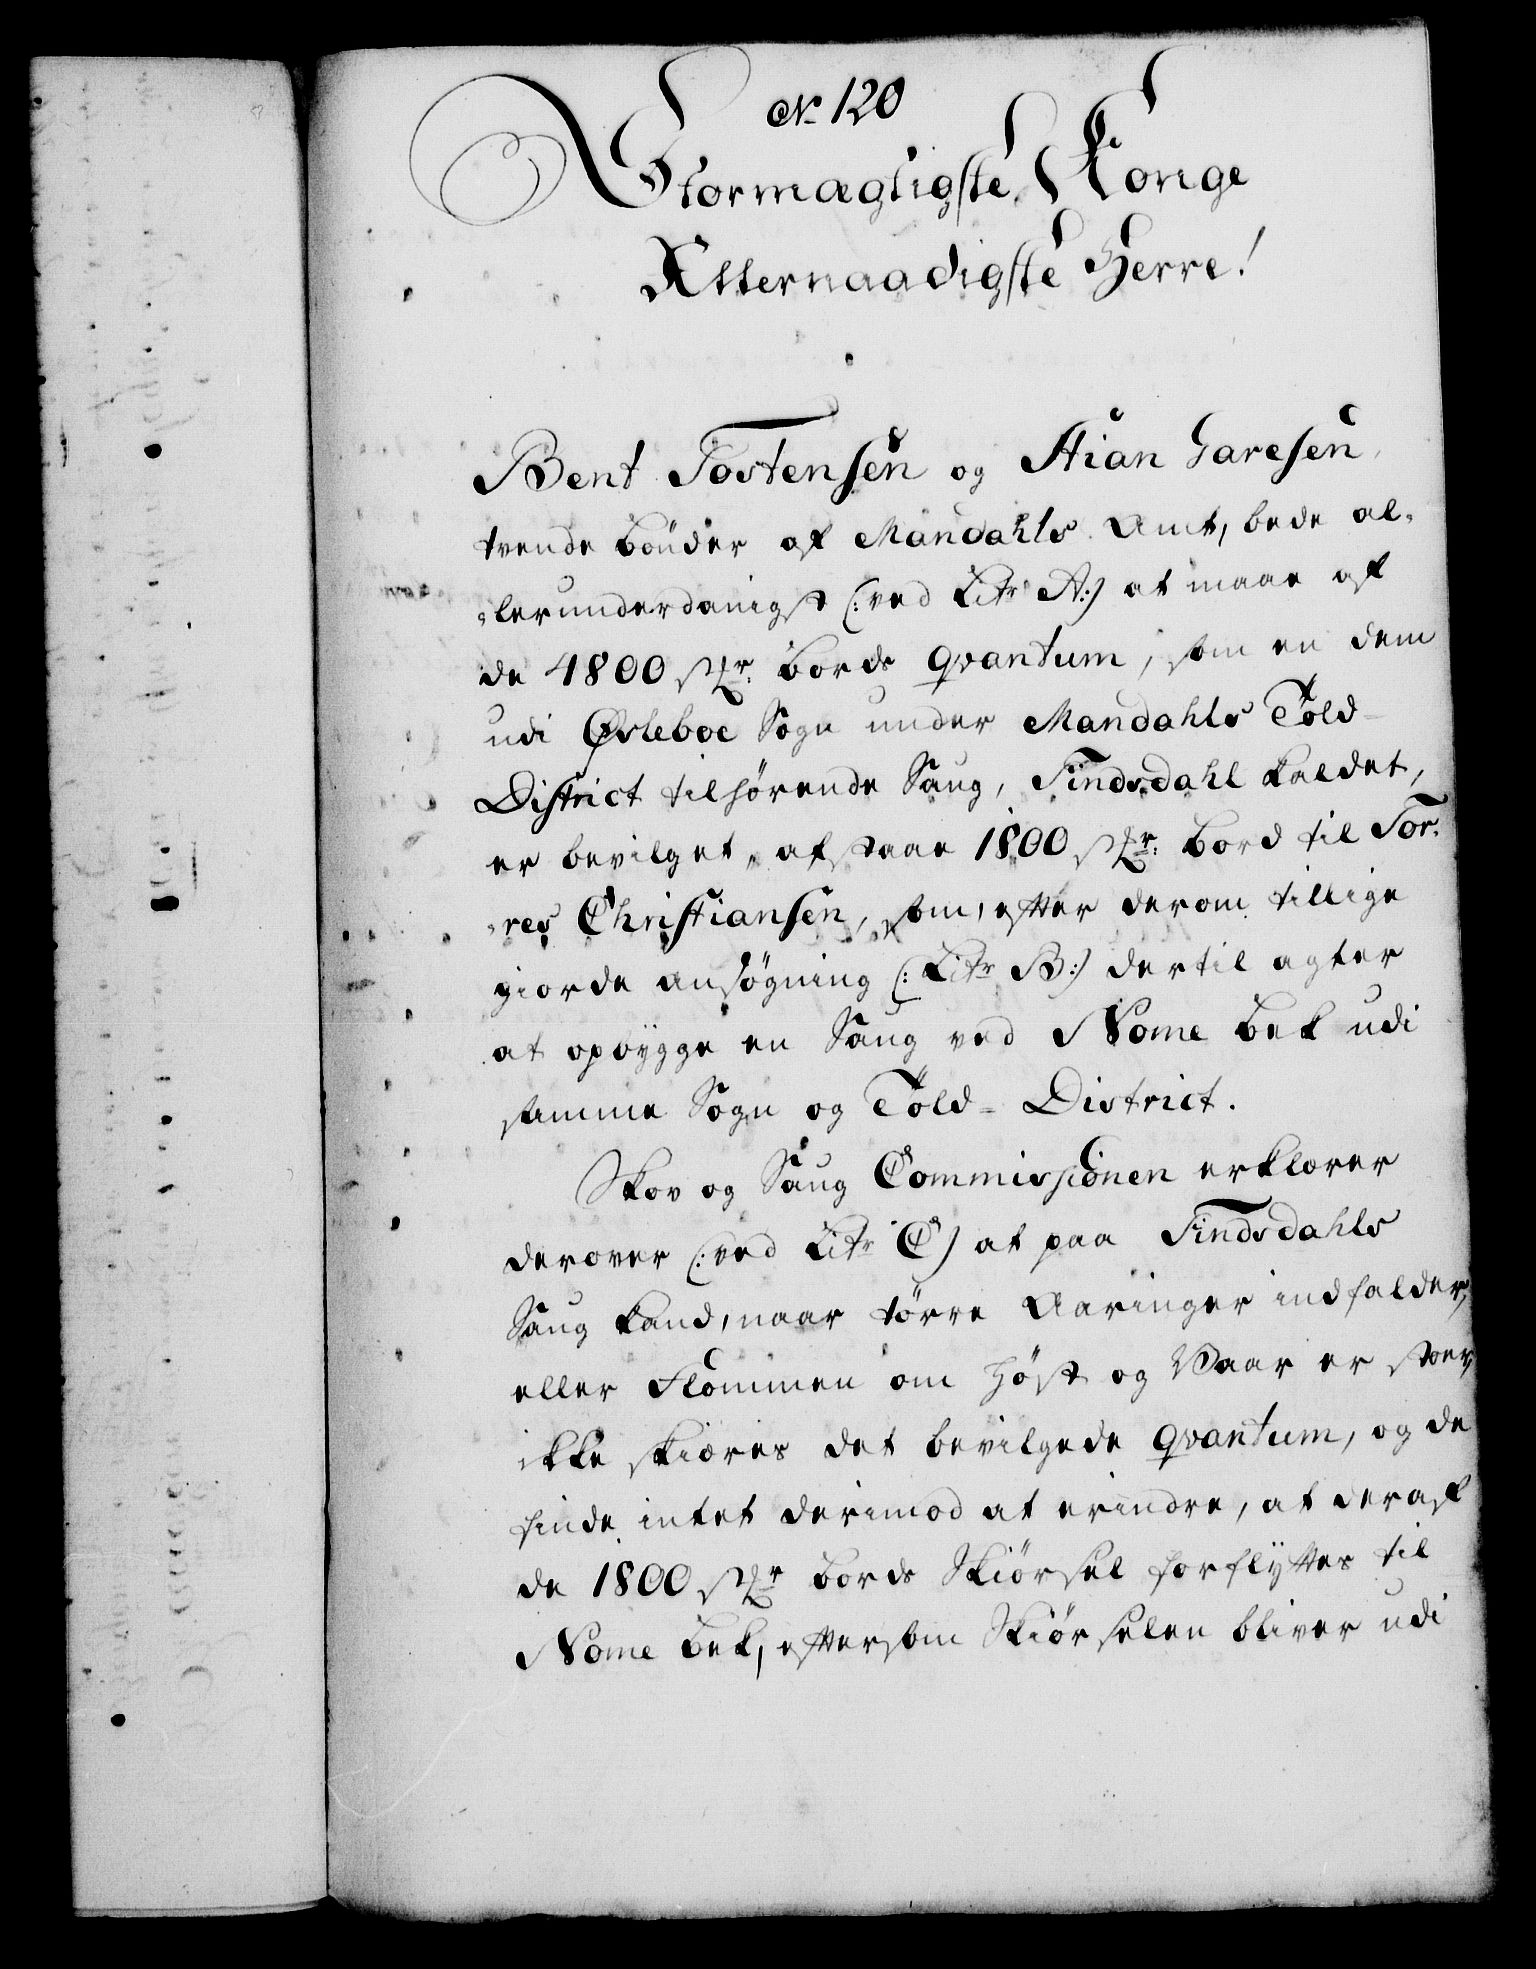 No 120
Stormægtigste Konge
Allernaadigste Herre!
Bent Tostensen og Stian Garesen,
tvende bönder af Mandahls Amt, bede al-
lerunderdanigst (: ved Litr A:) at maae af
de 4800 stkr. bords qvantum, som en dem
udi Øsleboe Sogn under Mandahls Told-
District tilhørende Saug, Findsdahl kaldet,
er bevilget, afstaae 1800 stkr. bord til Tor-
res Christiansen, som, efter derom tillige
giorde ansøgning (: Litr B:) dertil agter
at opbygge en Saug ved Nome bek udi
samme Sogn og Told-District.
Skov og Saug Commissionen erklærer
derover (: ved Litr C) at paa Findsdahls
Saug kand, naar tørre Aaringer indfalder,
eller Flommen om Høst og Vaar er stoer,
ikke skiæres det bevilgede qvantum, og de
finde intet derimod at erindre, at deraf
de 1800 stkr bords Skiørsel forflyttes til
Nome bek, eftersom Skiørselen bliver udi